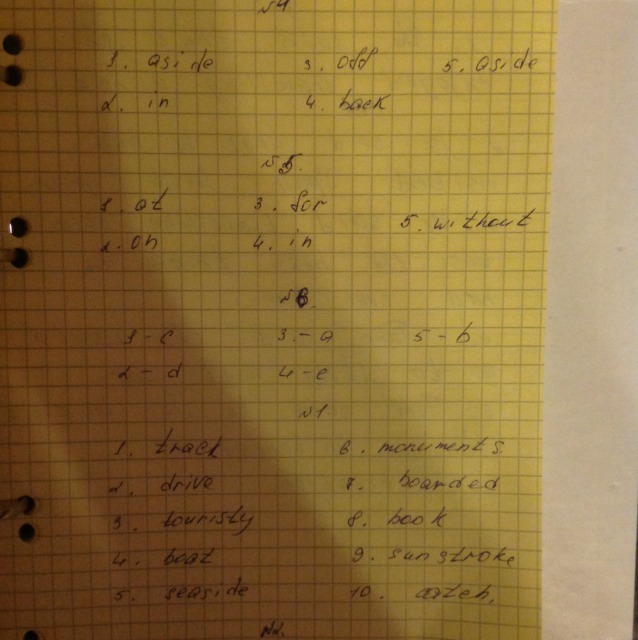 №4
1. aside 3. off 5. aside
2. in 4. back
№5.
1. at 3. for 5. without
2. on 4. in
№6.
1-c 3.-a 5-b
2-d 4-e
№1
1. track 6. monuments.
2. drive 7. boarded
3. touristy 8. book
4. boat 9. sunstroke
5. seaside 10.
№2.